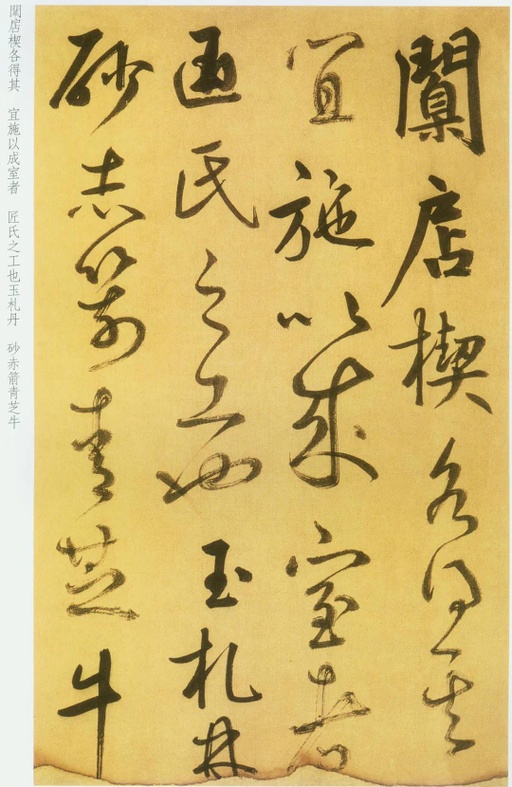 闑店楔各得其
宜施以成室者
匠氏之工也玉札丹
砂赤箭青芝牛
闑扂楔各得其　宜施以成室者　匠氏之工也玉札丹　砂赤箭青芝牛